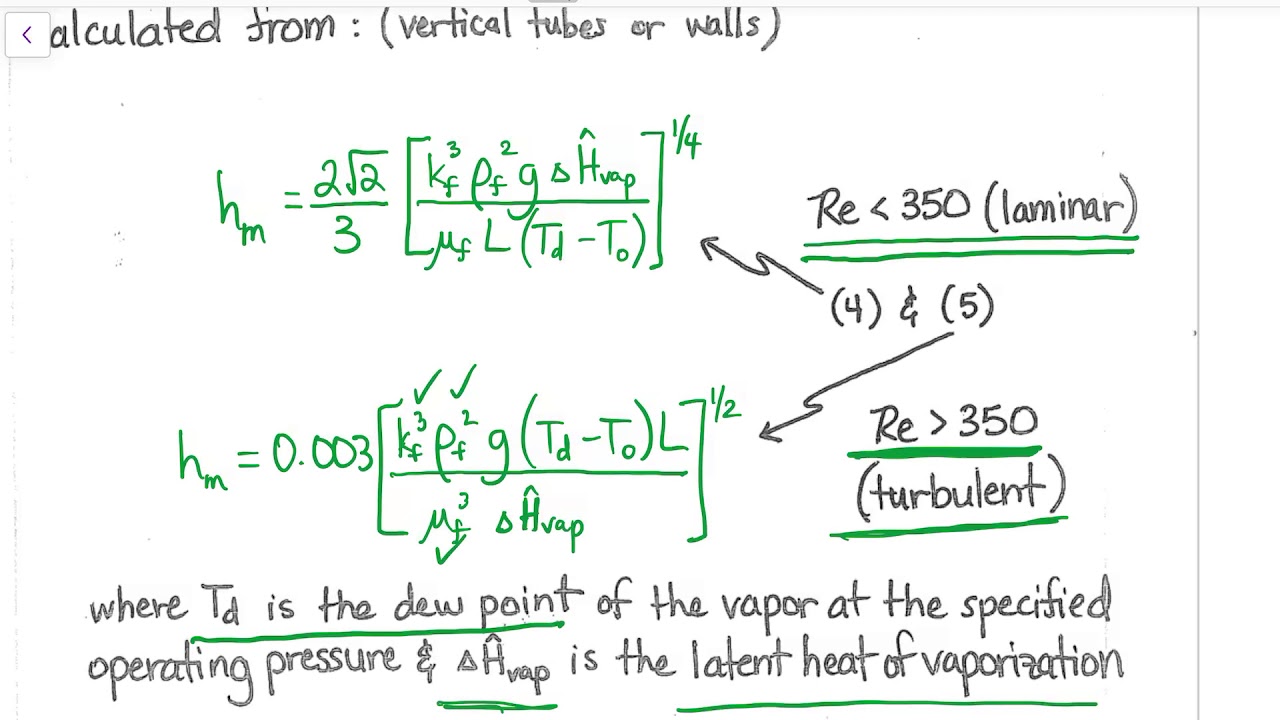 alculated from: (vertical tubes or walls)
h_m = 2√2/3 [k_f^3 ρ_f^2 g ΔĤ_vap / μ_f L (T_d - T_o)]^1/4
Re < 350 (laminar)
(4) & (5)
h_m = 0.003 [k_f^3 ρ_f^2 g (T_d - T_o) L / μ_f^3 ΔĤ_vap]^1/2
Re > 350
(turbulent)
where T_d is the dew point of the vapor at the specified
operating pressure & ΔĤ_vap is the latent heat of vaporization